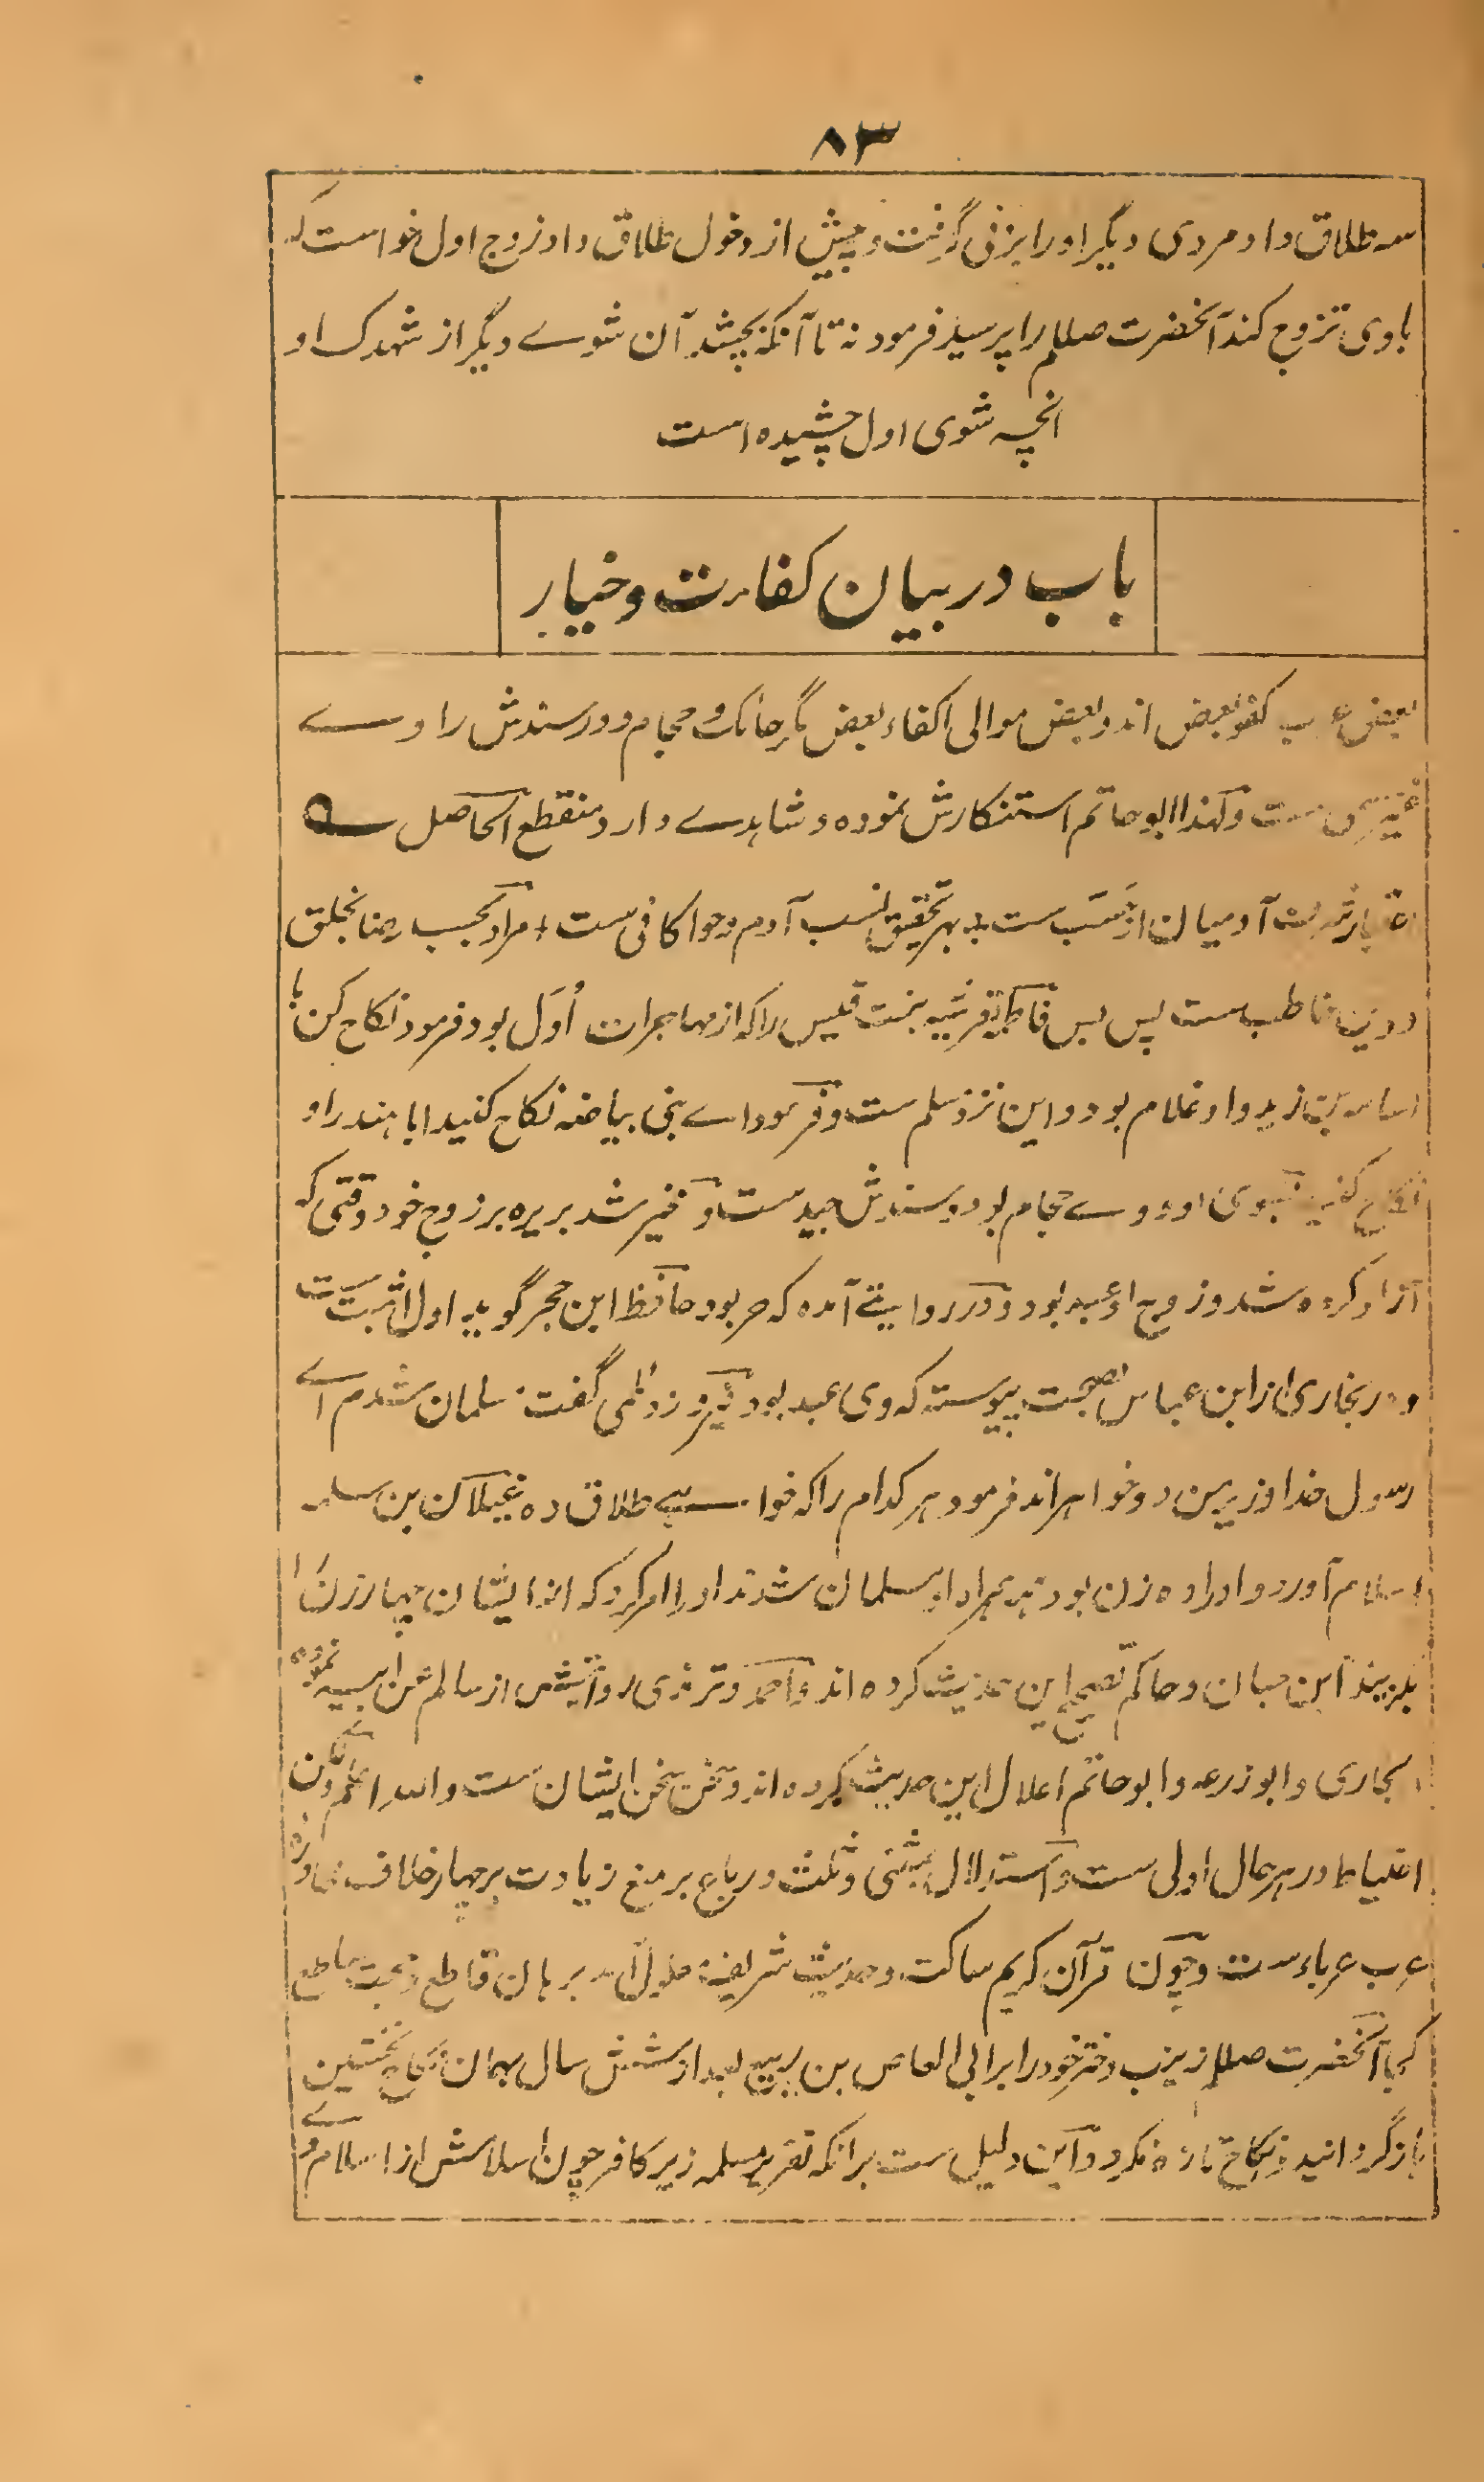 ۸۳
سه طلاق داد مردی دیگر او را بزنی گرفت و پیش از دخول طلاق داد زوج اول خواست که
با وی تزوج کند آنحضرت صللم را پرسید فرمود نه تا آنکه بچشد آن شوے دیگر از شهدک او
انچه شوی اول چشیده است
باب در بیان کفاءت و خیار
بعض عرب کفو بعض اند و بعض موالی اکفاء بعض مگر حائک و حجام و در سندش راوے
ست و لهذا ابو حاتم استنکارش نموده و شاهدے دارد منقطع الحاصل ے
آدمیان از نسب ست به بهر تحقیق نسب آدم و حوا کافی ست + مراد بحسب رضا بخلق
و دین خاطب ست پس بس فاطمه قرشیه بنت قیس را که از مهاجرات اُوَل بود فرمود نکاح کن با
اسامه بن زید و او غلام بود و این نزد مسلم ست و فرمود اے بنی بیاضه نکاح کنید ابا هند را و
نکاح کنید بسوی او و وے حجام بود و سندش جید ست و مخیر شد بریره بر زوج خود وقتی که
آزاد کرده شد و زوج او عبد بود و در روایتے آمده که حر بود حافظ ابن حجر گوید اول اثبت ست
و در بخاری از ابن عباس بصحت پیوسته که وی عبد بود فیروز دیلمی گفت مسلمان شدم اے
رسول خدا و زیر من دو خواهر اند فرمود هر کدام را که خواهی طلاق ده غیلان بن سلمه
اسلام آورد و او را ده زن بودند همراه او مسلمان شدند او را امر کرد که از ایشان چهار زن را
بگزیند ابن حبان و حاکم تصحیح این حدیث کرده اند و احمد و ترمذی روایتش از سالم عن ابیه نموده
بخاری و ابو زرعه و ابو حاتم اعلال این حدیث کرده اند و سخن سخن ایشان ست و الله اعلم
احتیاط در هر حال اولی ست و استدلال بمثنی و ثلث و رباع بر منع زیادت بر چهار خلاف محاوره
عرب عرباء ست و چون قرآن کریم ساکت و حدیث شریف برهان قاطع و حجت ساطع
کجا آنحضرت صللم زینب دختر خود را بر ابی العاص بن ربیع بعد از شش سال بهمان نکاح نخستین
باز گردانید و نکاح تازه نکرد و این دلیل ست بر آنکه تقریر مسلمه زیر کافر چون اسلامش از اسلام وے